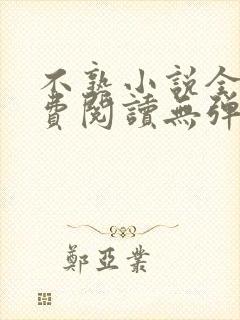 不熟小說全
費閱讀無彈
鄭亞業